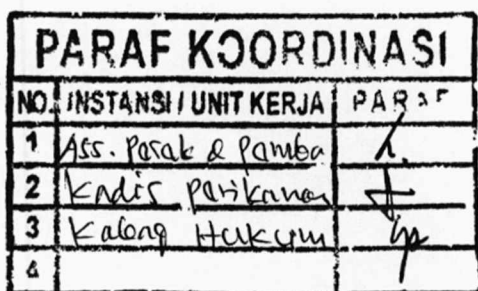 PARAF KOORDINASI
NO. INSTANSI / UNIT KERJA PARAF
1 Ass. Perek & Pamba
2 Kadis Perikanan
3 Kabag Hukum
4